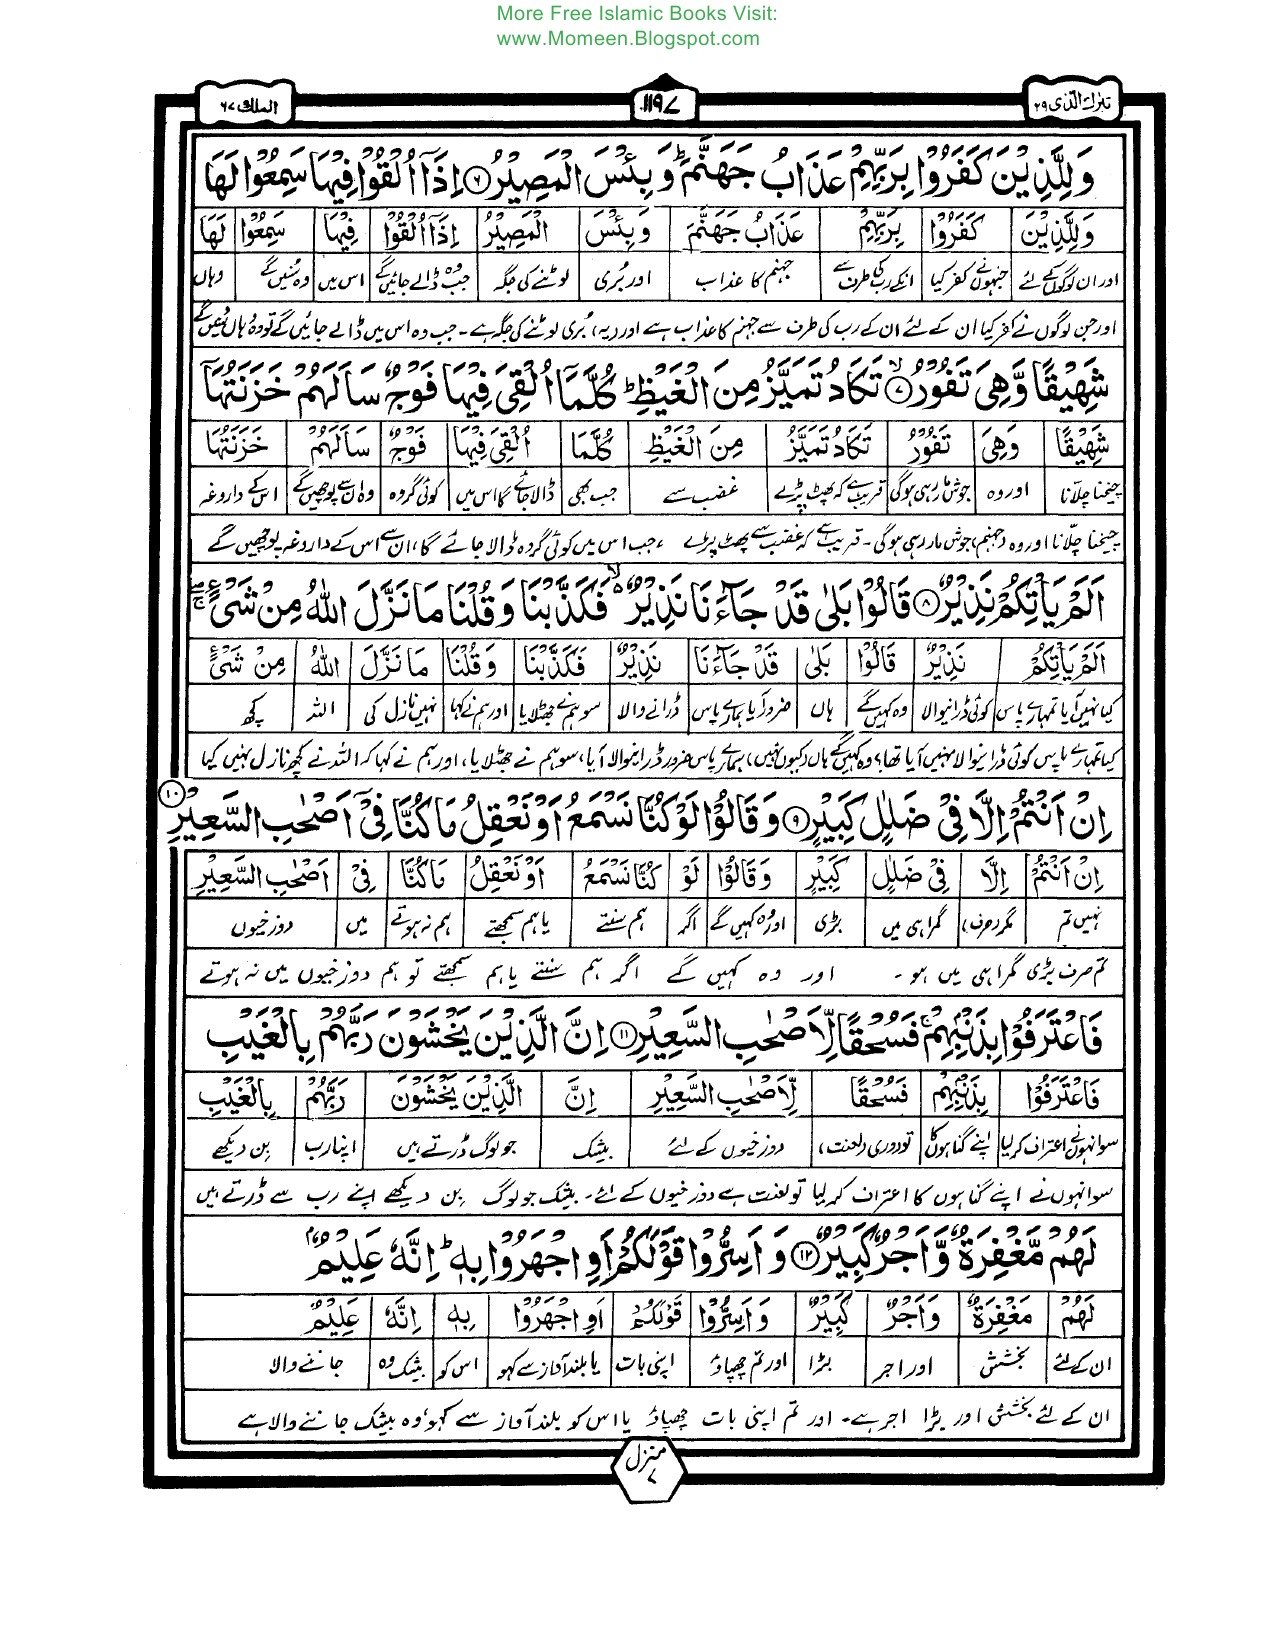 More Free Islamic Books Visit:
www.Momeen.Blogspot.com
تبٰرك الّذى ٢٩
١١٩٧
الملك ٦٧
وَلِلَّذِيْنَ كَفَرُوْا بِرَبِّهِمْ عَذَابُ جَهَنَّمَ ؕ وَبِئْسَ الْمَصِيْرُ ﴿٦﴾ اِذَاۤ اُلْقُوْا فِيْهَا سَمِعُوْا لَهَا
وَلِلَّذِيْنَ كَفَرُوْا بِرَبِّهِمْ عَذَابُ جَهَنَّمَ وَبِئْسَ الْمَصِيْرُ اِذَاۤ اُلْقُوْا فِيْهَا سَمِعُوْا لَهَا
اور ان لوگوں کے لئے جنہوں نے کفر کیا انکے رب کی طرف سے جہنم کا عذاب اور بُری لوٹنے کی جگہ جب وہ ڈالے جائیں گے اس میں وہ سُنیں گے وہاں
اور جن لوگوں نے کفر کیا ان کے لئے ان کے رب کی طرف سے جہنم کا عذاب ہے اور (یہ) بُری لوٹنے کی جگہ ہے۔ جب وہ اس میں ڈالے جائیں گے تو وہ وہاں سُنیں گے
شَهِيْقًا وَّهِىَ تَفُوْرُ ﴿٧﴾ تَكَادُ تَمَيَّزُ مِنَ الْغَيْظِ ؕ كُلَّمَاۤ اُلْقِىَ فِيْهَا فَوْجٌ سَاَلَهُمْ خَزَنَتُهَاۤ
شَهِيْقًا وَهِىَ تَفُوْرُ تَكَادُ تَمَيَّزُ مِنَ الْغَيْظِ كُلَّمَا اُلْقِىَ فِيْهَا فَوْجٌ سَاَلَهُمْ خَزَنَتُهَا
چیخنا چلّانا اور وہ جوش مار رہی ہوگی قریب ہے کہ پھٹ پڑے غضب سے جب بھی ڈالا جائے گا اس میں کوئی گروہ وہ ان سے پوچھیں گے اس کے داروغہ
چیخنا چلّانا اور وہ (جہنم) جوش مار رہی ہوگی۔ قریب ہے کہ غضب سے پھٹ پڑے، جب اس میں کوئی گروہ ڈالا جائے گا، ان سے اس کے داروغہ پوچھیں گے
اَلَمْ يَاْتِكُمْ نَذِيْرٌ ﴿٨﴾ قَالُوْا بَلٰى قَدْ جَآءَنَا نَذِيْرٌ ۙ فَكَذَّبْنَا وَقُلْنَا مَا نَزَّلَ اللّٰهُ مِنْ شَىْءٍ ۚۖ
اَلَمْ يَاْتِكُمْ نَذِيْرٌ قَالُوْا بَلٰى قَدْ جَآءَنَا نَذِيْرٌ فَكَذَّبْنَا وَقُلْنَا مَا نَزَّلَ اللّٰهُ مِنْ شَىْءٍ
کیا نہیں آیا تمہارے پاس کوئی ڈرانیوالا وہ کہیں گے ہاں ضرور آیا ہمارے پاس ڈرانے والا سو ہم نے جھٹلایا اور ہم نے کہا نہیں نازل کی اللہ کچھ
کیا تمہارے پاس کوئی ڈرانیوالا نہیں آیا تھا؟ وہ کہیں گے ہاں (کیوں نہیں) ہمارے پاس ضرور ڈرانیوالا آیا، سو ہم نے جھٹلایا، اور ہم نے کہا کہ اللہ نے کچھ نازل نہیں کیا
اِنْ اَنْتُمْ اِلَّا فِىْ ضَلٰلٍ كَبِيْرٍ ﴿٩﴾ وَقَالُوْا لَوْ كُنَّا نَسْمَعُ اَوْ نَعْقِلُ مَا كُنَّا فِىْۤ اَصْحٰبِ السَّعِيْرِ ﴿١٠﴾
اِنْ اَنْتُمْ اِلَّا فِىْ ضَلٰلٍ كَبِيْرٍ وَقَالُوْا لَوْ كُنَّا نَسْمَعُ اَوْ نَعْقِلُ مَا كُنَّا فِىْ اَصْحٰبِ السَّعِيْرِ
نہیں تم مگر (صرف) گمراہی میں بڑی اور وہ کہیں گے اگر ہم سنتے یا ہم سمجھتے ہم نہ ہوتے میں دوزخیوں
تم صرف بڑی گمراہی میں ہو۔ اور وہ کہیں گے اگر ہم سنتے یا ہم سمجھتے تو ہم دوزخیوں میں نہ ہوتے
فَاعْتَرَفُوْا بِذَنْۢبِهِمْ ۚ فَسُحْقًا لِّاَصْحٰبِ السَّعِيْرِ ﴿١١﴾ اِنَّ الَّذِيْنَ يَخْشَوْنَ رَبَّهُمْ بِالْغَيْبِ
فَاعْتَرَفُوْا بِذَنْۢبِهِمْ فَسُحْقًا لِّاَصْحٰبِ السَّعِيْرِ اِنَّ الَّذِيْنَ يَخْشَوْنَ رَبَّهُمْ بِالْغَيْبِ
سو انہوں نے اعتراف کر لیا اپنے گناہوں کا تو دوری (لعنت) دوزخیوں کے لئے بیشک جو لوگ ڈرتے ہیں اپنا رب بِن دیکھے
سو انہوں نے اپنے گناہوں کا اعتراف کر لیا تو لعنت ہے دوزخیوں کے لئے۔ بیشک جو لوگ بِن دیکھے اپنے رب سے ڈرتے ہیں
لَهُمْ مَّغْفِرَةٌ وَّاَجْرٌ كَبِيْرٌ ﴿١٢﴾ وَاَسِرُّوْا قَوْلَكُمْ اَوِ اجْهَرُوْا بِهٖ ؕ اِنَّهٗ عَلِيْمٌۢ
لَهُمْ مَغْفِرَةٌ وَاَجْرٌ كَبِيْرٌ وَاَسِرُّوْا قَوْلَكُمْ اَوِ اجْهَرُوْا بِهٖ اِنَّهٗ عَلِيْمٌ
ان کے لئے بخشش اور اجر بڑا اور تم چھپاؤ اپنی بات یا بلند آواز سے کہو اس کو بیشک وہ جاننے والا
ان کے لئے بخشش اور بڑا اجر ہے۔ اور تم اپنی بات چھپاؤ یا اس کو بلند آواز سے کہو، وہ بیشک جاننے والا ہے
منزل ٧